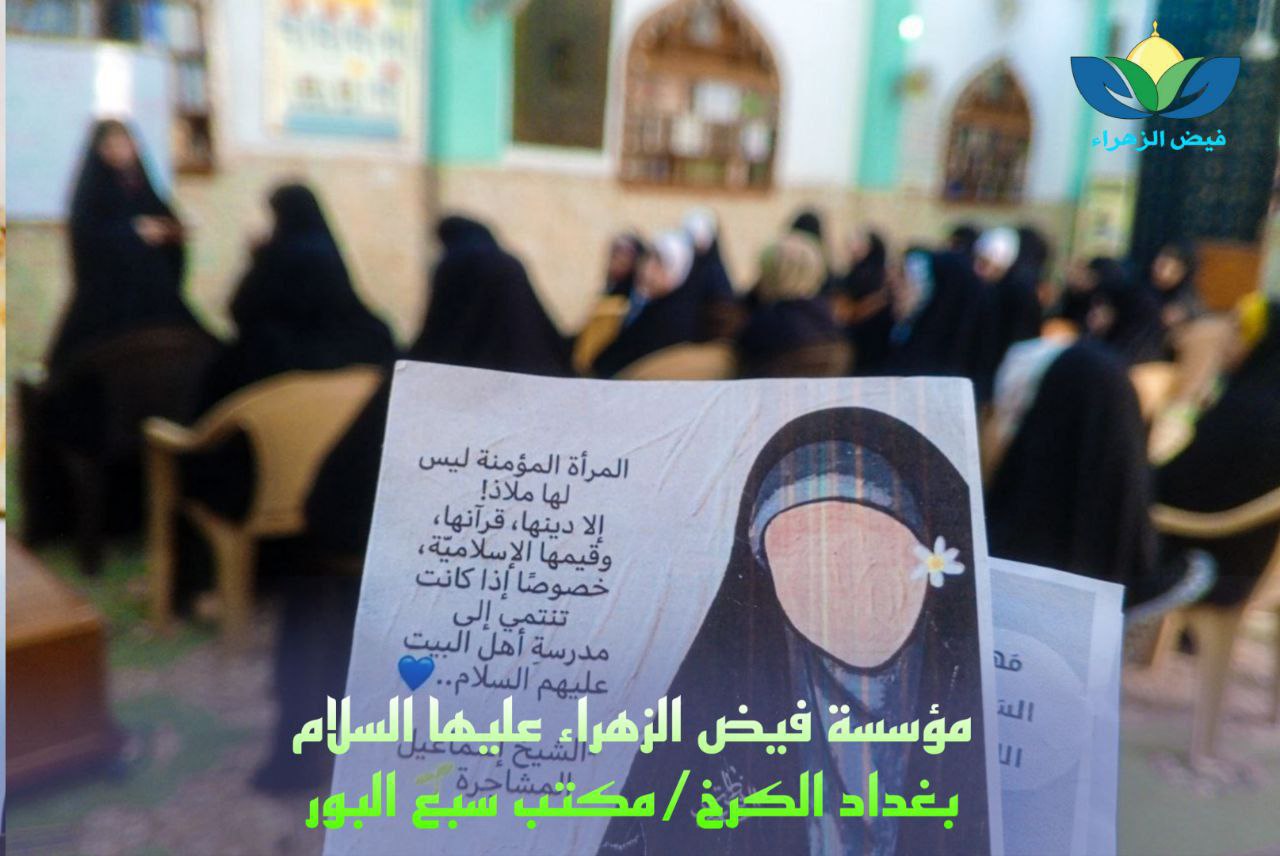 فيض الزهراء
المرأة المؤمنة ليس
لها ملاذ!
إلا دينها، قرآنها،
وقيمها الإسلاميّة،
خصوصًا إذا كانت
تنتمي إلى
مدرسةِ أهل البيت
عليهم السلام..💙
الشيخ إسماعيل
المشاجرة🌱
مؤسسة فيض الزهراء عليها السلام
بغداد الكرخ / مكتب سبع البور